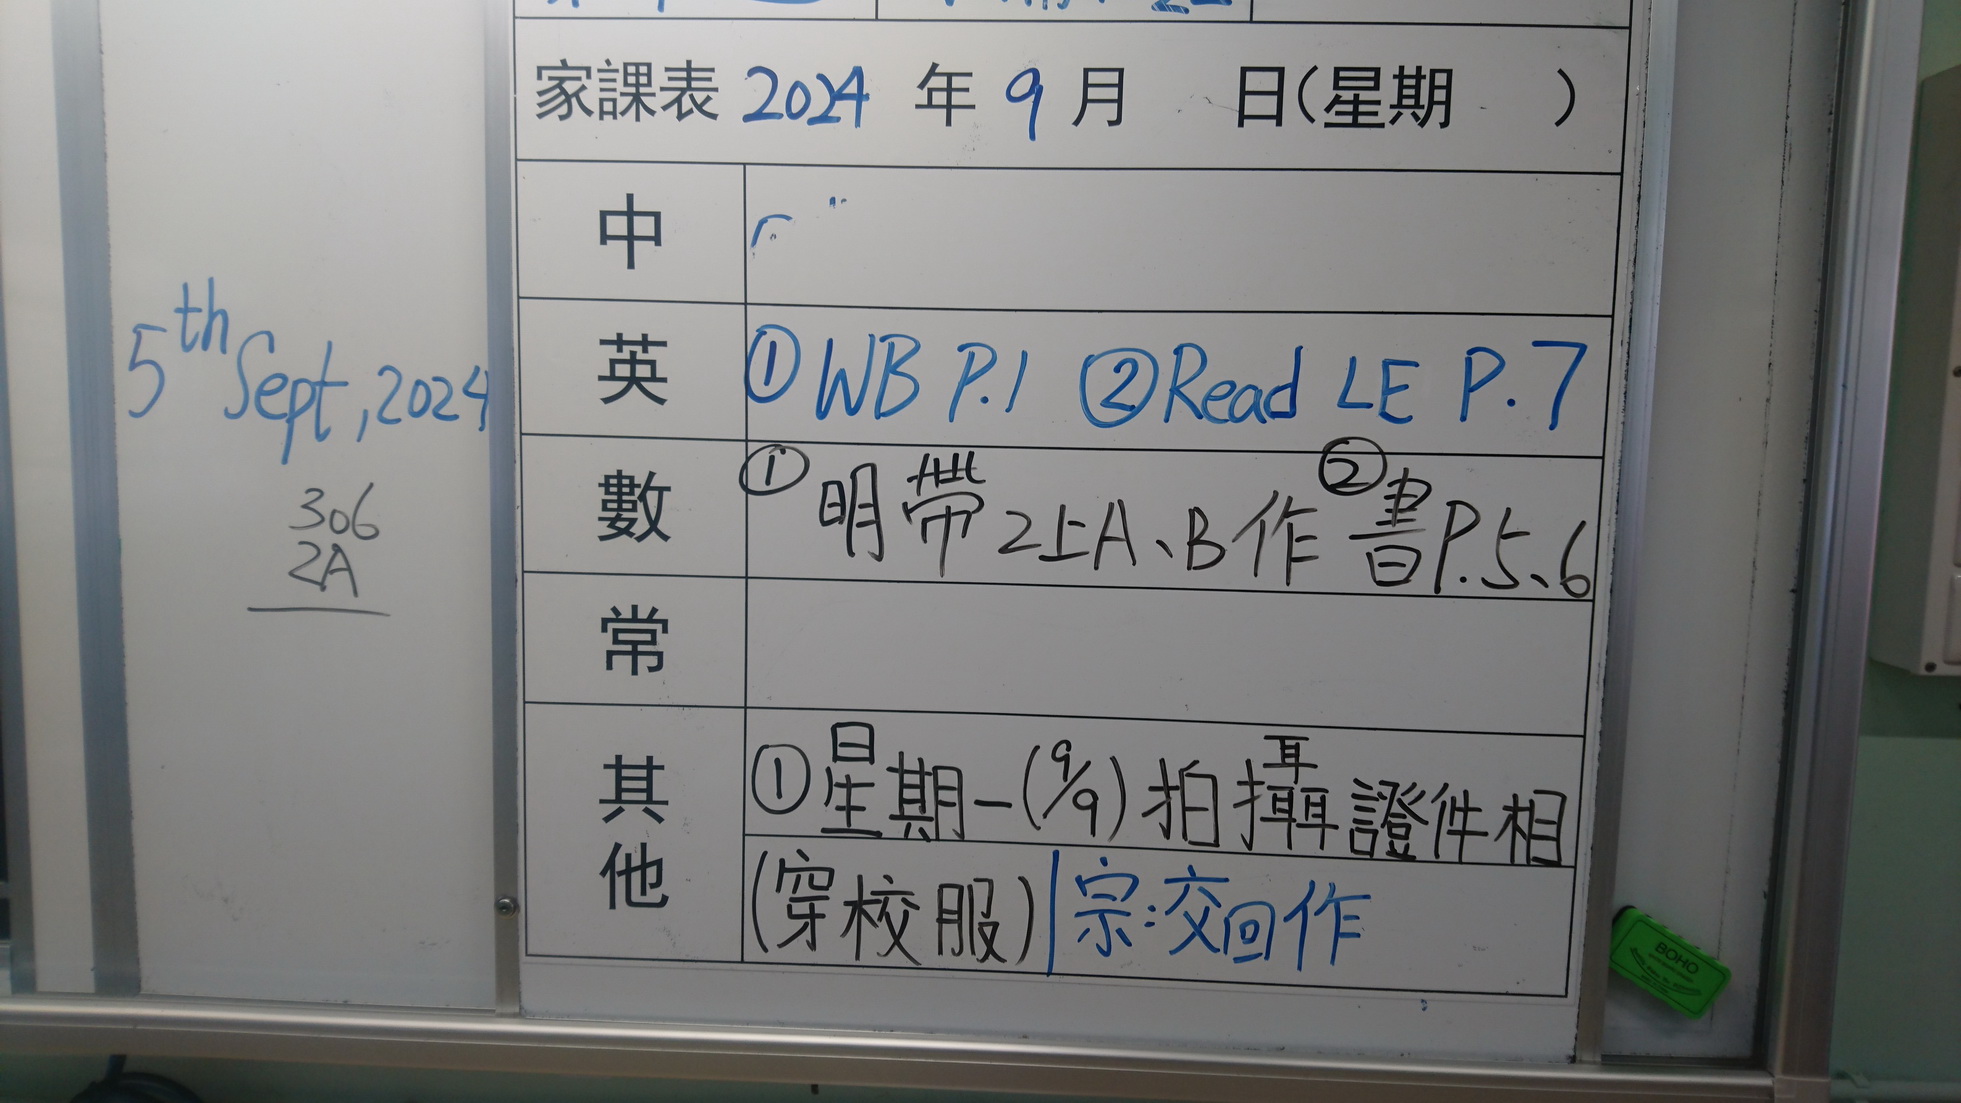 5th Sept, 2024
306
2A
家課表 2024 年 9 月 日(星期 )
中
英 ①WB P.1 ②Read LE P.7
數 ①明帶2上A、B作 ②書P.5、6
常
其他 ①星期一(9/9)拍攝證件相
(穿校服)|宗:交回作
BOHO